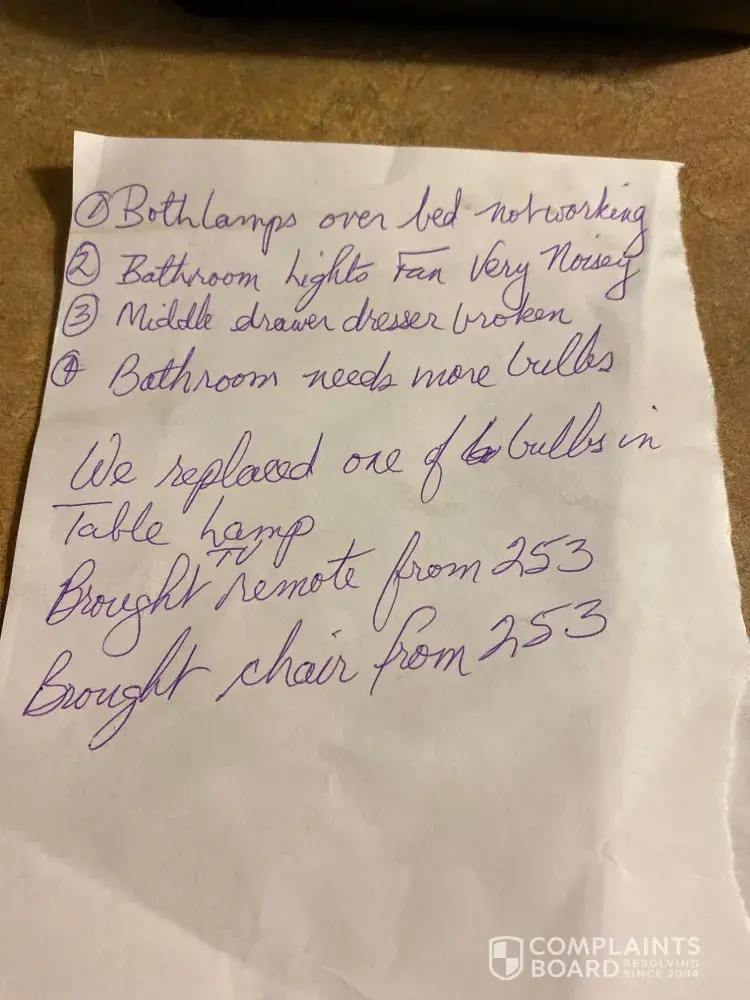 ① Both lamps over bed not working
② Bathroom Lights Fan Very Noisey
③ Middle drawer dresser broken
④ Bathroom needs more bulbs
We replaced one of bulbs in
Table Lamp
Brought TV remote from 253
Brought chair from 253
COMPLAINTS
BOARD RESOLVING SINCE 2004